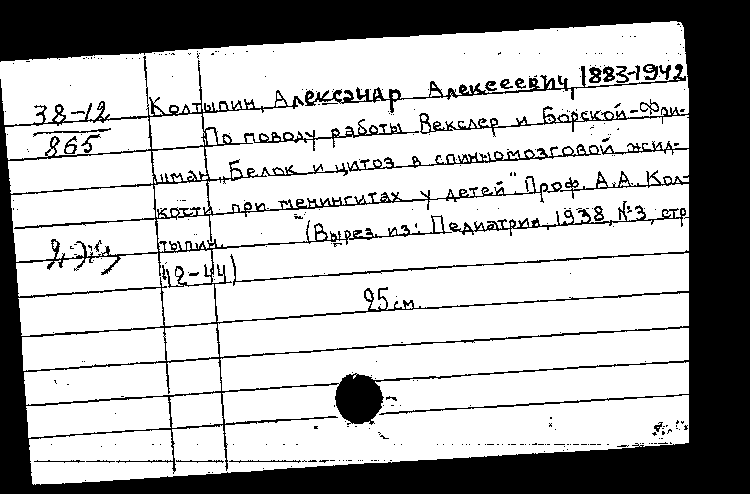 38-12
865
Колтыпин, Александр Алексеевич, 1883-1942
По поводу работы Векслер и Борской-Фри-
шман „Белок и цитоз в спинномозговой жид-
кости при менингитах у детей". Проф. А.А. Кол-
тыпин. (Вырез. из: Педиатрия, 1938, №3, стр
42-44)
25 см.